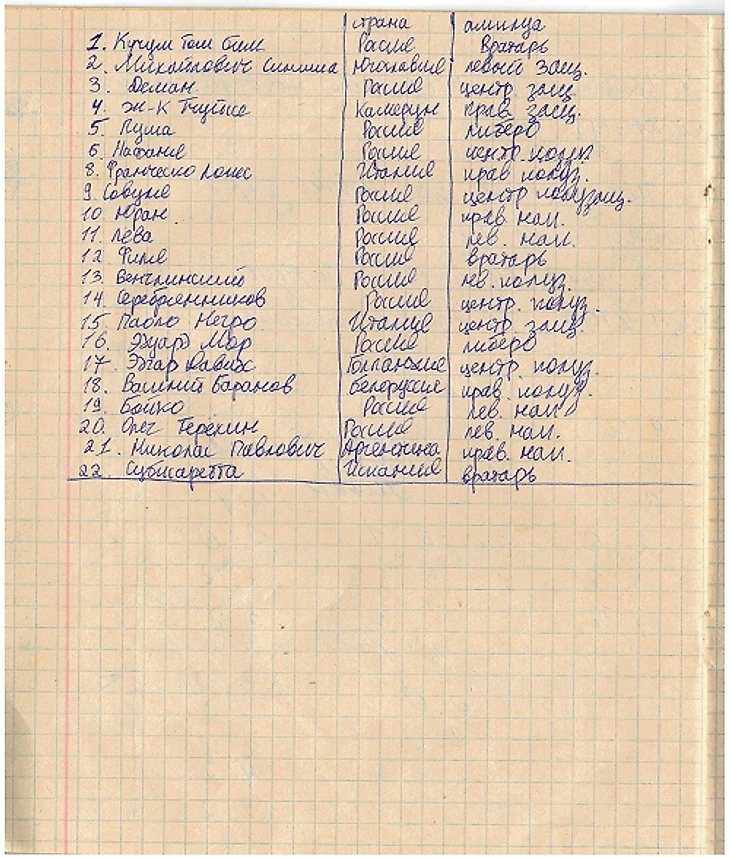 страна амплуа
1. Кучум Том Бим Россия Вратарь
2. Михайлович Синиша Югославия левый защ.
3. Деман Россия центр защ
4. Ж-К Камерун прав. защ.
5. Пума Россия либеро
6. Нафаня Россия центр. полуз.
8. Франческо Италия прав. полуз.
9. Совуня Россия центр полузащ.
10. Юран. Россия прав. нап.
11. Лева Россия лев. нап.
12. Филя Россия вратарь
13. Россия лев. полуз.
14. Серебрянников Россия центр. полуз.
15. Паоло Негро Италия центр. защ.
16. Эдуард Мор Россия либеро
17. Эдгар Давидс Голландия центр. полуз.
18. Василий Баранов Белоруссия прав. полуз.
19. Бойко Россия лев. нап
20. Олег Терехин Россия лев. нап.
21. Николас Павлович Аргентина прав. нап.
22. Субисаретта Испания вратарь